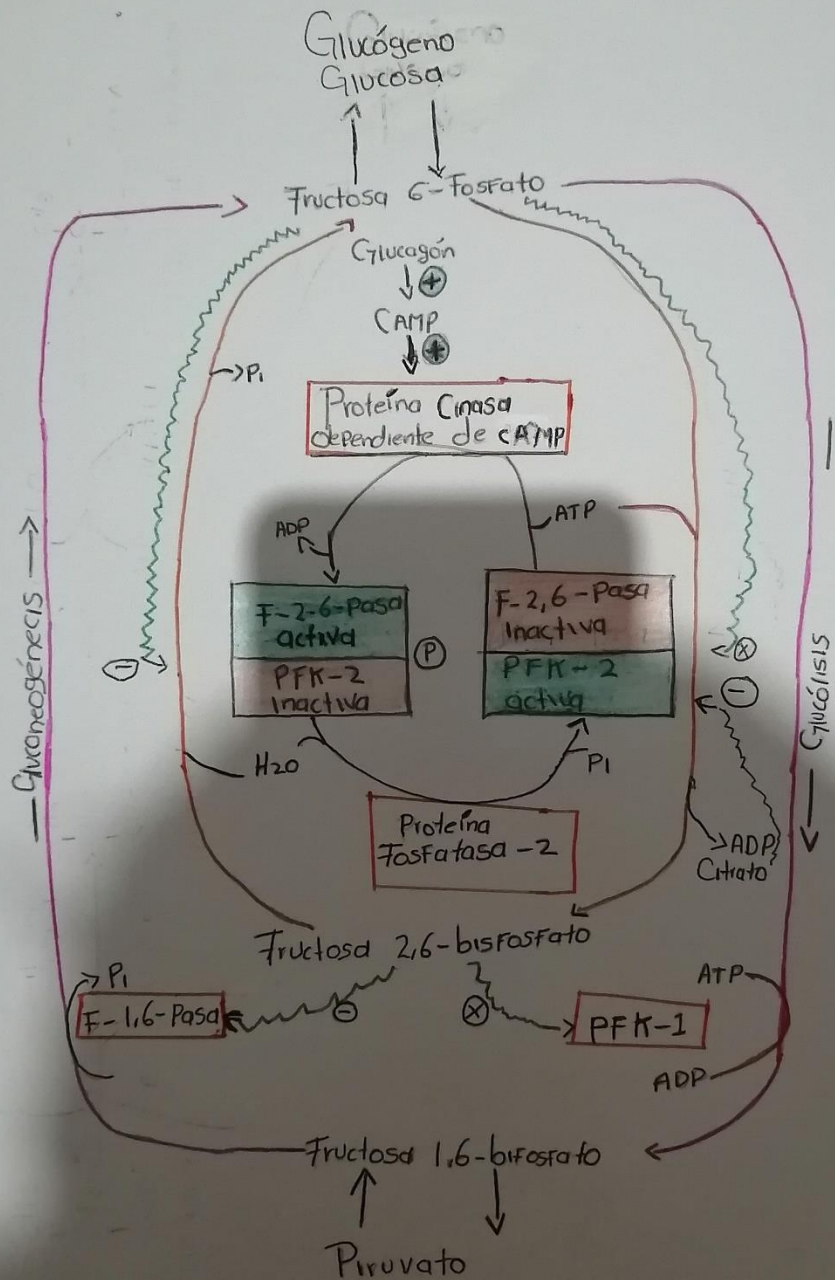 Glucógeno
Glucosa
Fructosa 6-Fosfato
Glucagón
+
CAMP
+
Pi
Proteína Cinasa
dependiente de cAMP
ADP
ATP
F-2-6-Pasa
activa
PFK-2
Inactiva
P
F-2,6-Pasa
Inactiva
PFK-2
activa
-
x
-
Gluconeogénecis
Glucólisis
H2O
Pi
Proteína
Fosfatasa-2
ADP
Citrato
Fructosa 2,6-bisfosfato
Pi
F-1,6-Pasa
-
x
PFK-1
ATP
ADP
Fructosa 1,6-bifosfato
Piruvato